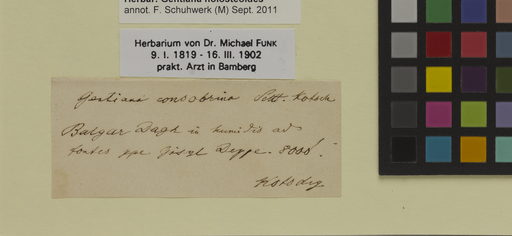 Herbar. Gentiana holosteoides
annot. F. Schuhwerk (M) Sept. 2011
Herbarium von Dr. Michael FUNK
9. I. 1819 - 16. III. 1902
prakt. Arzt in Bamberg
Gentiana consobrina Schtt. Kotsch
Bulgar Dagh in humidis ad
fontes Gisyl Deppe. 8000'.
Kotschy.